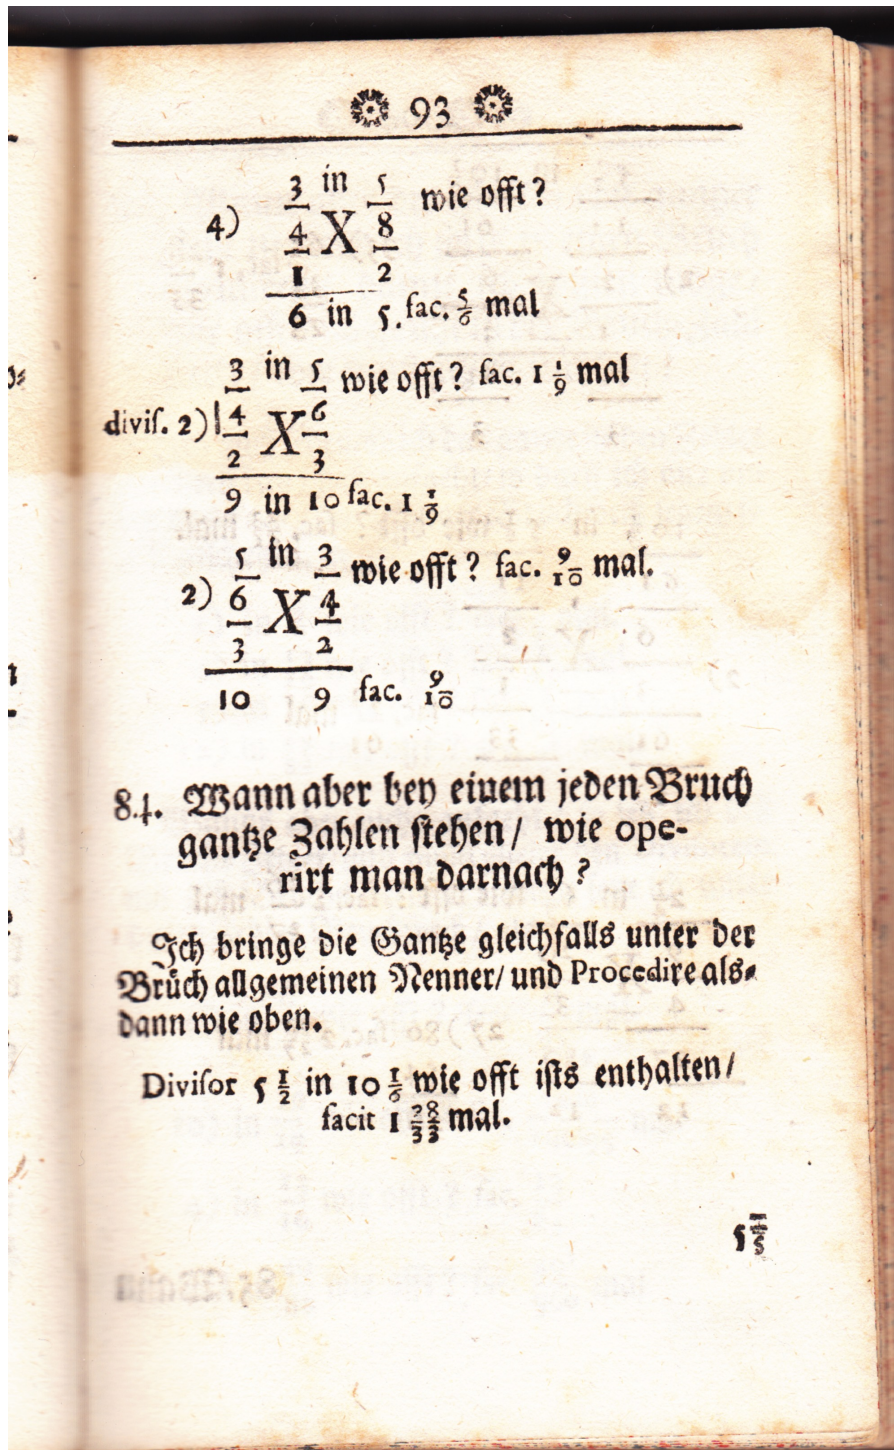 93
3 in 5 wie offt?
4) 4 X 8
1 2
6 in 5. fac. 5/6 mal
3 in 5 wie offt? fac. 1 1/9 mal
divis. 2) 4 X 6
2 3
9 in 10 fac. 1 1/9
5 in 3 wie offt? fac. 9/10 mal.
2) 6 X 4
3 2
10 9 fac. 9/10
84. Wann aber bey einem jeden Bruch
gantze Zahlen stehen / wie ope-
rirt man darnach?
Ich bringe die Gantze gleichfalls unter der
Brüch allgemeinen Nenner / und Procedire als-
dann wie oben.
Divisor 5 1/2 in 10 1/6 wie offt ists enthalten /
facit 1 28/33 mal.